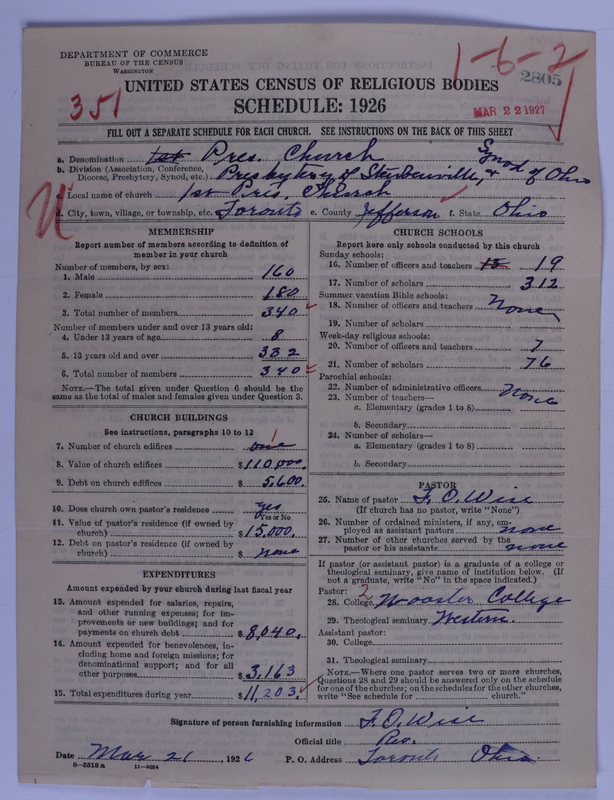 DEPARTMENT OF COMMERCE
BUREAU OF THE CENSUS
WASHINGTON
1-6-2
2805
UNITED STATES CENSUS OF RELIGIOUS BODIES
351
SCHEDULE: 1926
MAR 22 1927
FILL OUT A SEPARATE SCHEDULE FOR EACH CHURCH. SEE INSTRUCTIONS ON THE BACK OF THIS SHEET
a. Denomination 1st Pres. Church
b. Division (Association, Conference, Diocese, Presbytery, Synod, etc.) Presbytery of Steubenville, & Synod of Ohio
c. Local name of church 1st Pres. Church
d. City, town, village, or township, etc. Toronto e. County Jefferson f. State Ohio
MEMBERSHIP
Report number of members according to definition of
member in your church
Number of members, by sex:
1. Male 160
2. Female 180
3. Total number of members 340
Number of members under and over 13 years old:
4. Under 13 years of age 8
5. 13 years old and over 332
6. Total number of members 340
NOTE.—The total given under Question 6 should be the
same as the total of males and females given under Question 3.
CHURCH BUILDINGS
See instructions, paragraphs 10 to 12
7. Number of church edifices one 1
8. Value of church edifices $110,000.
9. Debt on church edifices $5,600.
10. Does church own pastor's residence yes
Yes or No
11. Value of pastor's residence (if owned by
church) $15,000.
12. Debt on pastor's residence (if owned by
church) $ none
EXPENDITURES
Amount expended by your church during last fiscal year
13. Amount expended for salaries, repairs,
and other running expenses; for im-
provements or new buildings; and for
payments on church debt $8,040.
14. Amount expended for benevolences, in-
cluding home and foreign missions; for
denominational support; and for all
other purposes $3,163
15. Total expenditures during year $11,203.
CHURCH SCHOOLS
Report here only schools conducted by this church
Sunday schools:
16. Number of officers and teachers 19
17. Number of scholars 312
Summer vacation Bible schools:
18. Number of officers and teachers None
19. Number of scholars
Week-day religious schools:
20. Number of officers and teachers 7
21. Number of scholars 76
Parochial schools:
22. Number of administrative officers None
23. Number of teachers—
a. Elementary (grades 1 to 8)
b. Secondary
24. Number of scholars—
a. Elementary (grades 1 to 8)
b. Secondary
PASTOR
25. Name of pastor F. O. Wise
(If church has no pastor, write "None")
26. Number of ordained ministers, if any, em-
ployed as assistant pastors none
27. Number of other churches served by the
pastor or his assistants none
If pastor (or assistant pastor) is a graduate of a college or
theological seminary, give name of institution below. (If
not a graduate, write "No" in the space indicated.)
Pastor: 2
28. College Wooster College
29. Theological seminary Western
Assistant pastor:
30. College
31. Theological seminary
NOTE.—Where one pastor serves two or more churches,
Questions 28 and 29 should be answered only on the schedule
for one of the churches; on the schedules for the other churches,
write "See schedule for church."
Signature of person furnishing information F. O. Wise
Official title Rev.
Date Mar 21, 1926 P. O. Address Toronto Ohio
8—5518 a 11—9054